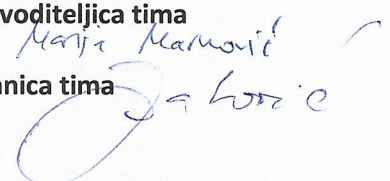 voditeljica tima
Marija Marković
nica tima